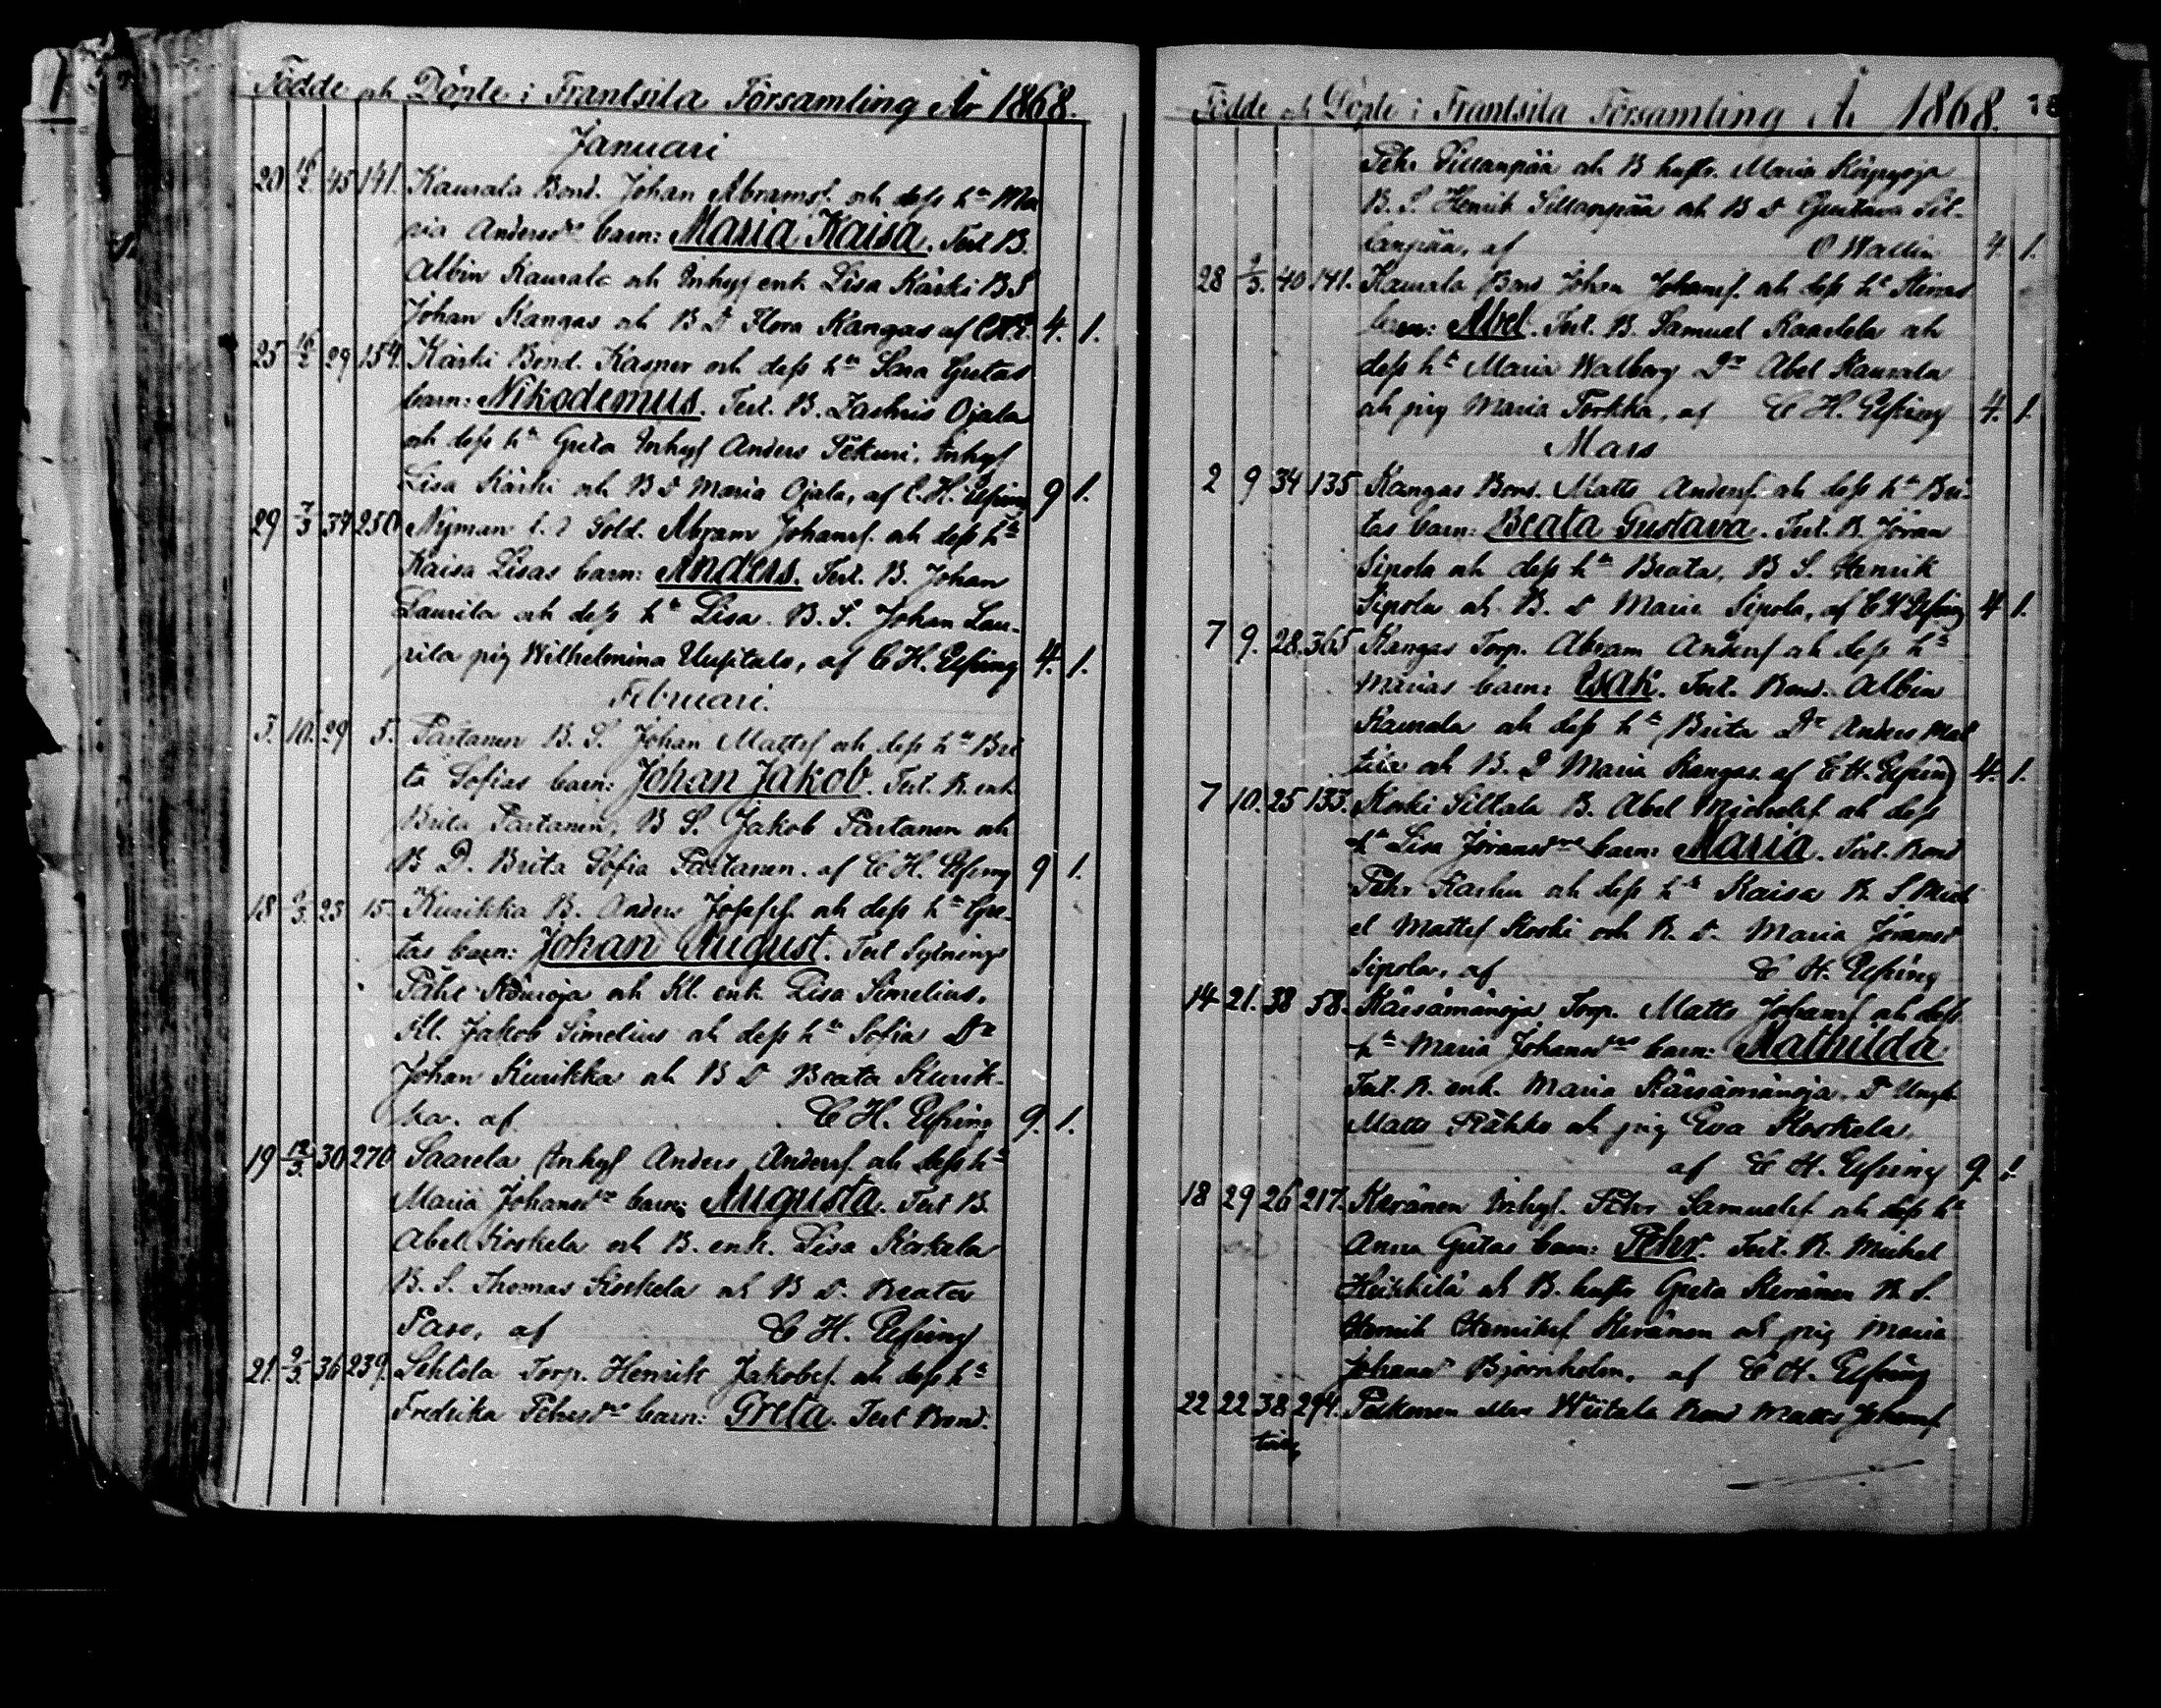 Födde och Döpte i Frantsila Församling År 1868.
Januari
20 16/2. 45 141. Kaurala Bond. Johan Abramsf. och dess hu Ma
ria Andersdrs barn: Maria Kaisa. Test B.
Albin Kaurala och Inhys enk Lisa Kärki B S
Johan Kangas och B D Flora Kangas af 4. 1.
25 16/2 29 154. Kärki Bond. Kasper och dess hu Sara Gretas
barn: Nikodemus. Test. B. Zachris Ojala
och dess hu Greta Inhys Anders Inhys
Lisa Kärki och B D Maria Ojala, af C. H. Elfving 9 1.
29 7/3 37 250 Nyman Sold. Abram Johansf. och dess hu
Kaisa Lisas barn: Anders. Test. B. Johan
Laurila och dess hu Lisa. B. S. Johan Lau-
rila pig Wilhelmina Uusitalo, af C H. Elfving 4. 1.
Februari.
3. 10. 29 5. Partanen B. S. Johan Mattsf och dess hu Bri
ta Sofias barn: Johan Jakob. Test. B. enk.
Brita Partanen, B S. Jakob Partanen och
B D. Brita Sofia Partanen. af C H. Elfving 9 1.
18 9/3. 23 15 Kurikka B. Anders Josefsf. och dess hu Gre-
tas barn: Johan August. Test Sytnings
och Kl. enk. Lisa Simelius,
Kl. Jakob Simelius och dess hu Sofia Dr
Johan Kurikka och B D Beata Kurik-
ka. af C H. Elfving 9. 1.
19 12/3. 30 270 Saarela Inhys Anders Andersf. och dess hu
Maria Johansdrs barn: Augusta. Test B.
Abel Koskela och B. enk. Lisa Koskela
B. S. Thomas Koskela och B D. Beata
Paso, af C H. Elfving
21. 9/3. 36 239. Lehtola Torp. Henrik Jakobsf. och dess hu
Fredrika Pehrsdrs barn: Greta. Test Bond.
Födde och Döpte i Frantsila Församling År 1868. 78
Pehr Sillanpää och B hustr. Maria
B. S. Henrik Sillanpää och B D Gustava Sil-
lanpää, af O Wallin 4. 1.
28 9/3. 40 141. Kaurala Bond Johan Johansf. och dess hu Stinas
barn: Abel. Test. B. Samuel Raassela och
dess hu Maria Walborg Dr Abel Kaurala
och pig Maria Torkka, af C H. Elfving 4. 1.
Mars
2 9 34 135 Kangas Bond. Matts Andersf. och dess hu Bri-
tas barn: Beata Gustava. Test. B. Jöran
Sipola och dess hu Beata, B S. Henrik
Sipola och B. D Maria Sipola, af C H Elfving 4. 1.
7 9. 28. 365 Kangas Torp. Abram Andersf och dess hu
Marias barn: Esak. Test. Bond. Albin
Kaurala och dess hu Brita Dr Anders Mat
tila och B. D Maria Kangas af C H. Elfving 4. 1.
7 10. 25 133. Koski Siltala B. Abel Michelsf och dess
hu Lisa Jöransdrs barn: Maria. Test. Bond
Pehr Karhu och dess hu Kaisa B. S Mich
el Mattsf Koski och B. D. Maria Jöransd
Sipola, af C H. Elfving
14 21. 38 58. Kärsämänoja Torp. Matts Johansf och dess
hu Maria Johansdrs barn: Mathilda
Test. B. enk. Maria Kärsämänoja, D Ungk.
Matts Rähkö och pig Eva Koskela,
af C H. Elfving 9. 1.
18 29 26 217. Keränen Inhys. Pehr Samuelsf och dess hu
Anna Gretas barn: Pehr. Test. B. Michel
Heikkilä och B. hustr Greta Keränen B. S.
Henrik Henriksf Keränen och pig Maria
Johansd Björnholm, af C H. Elfving
22 22 38. 294. Pelkonen Wiitala Bond Matts Johansf